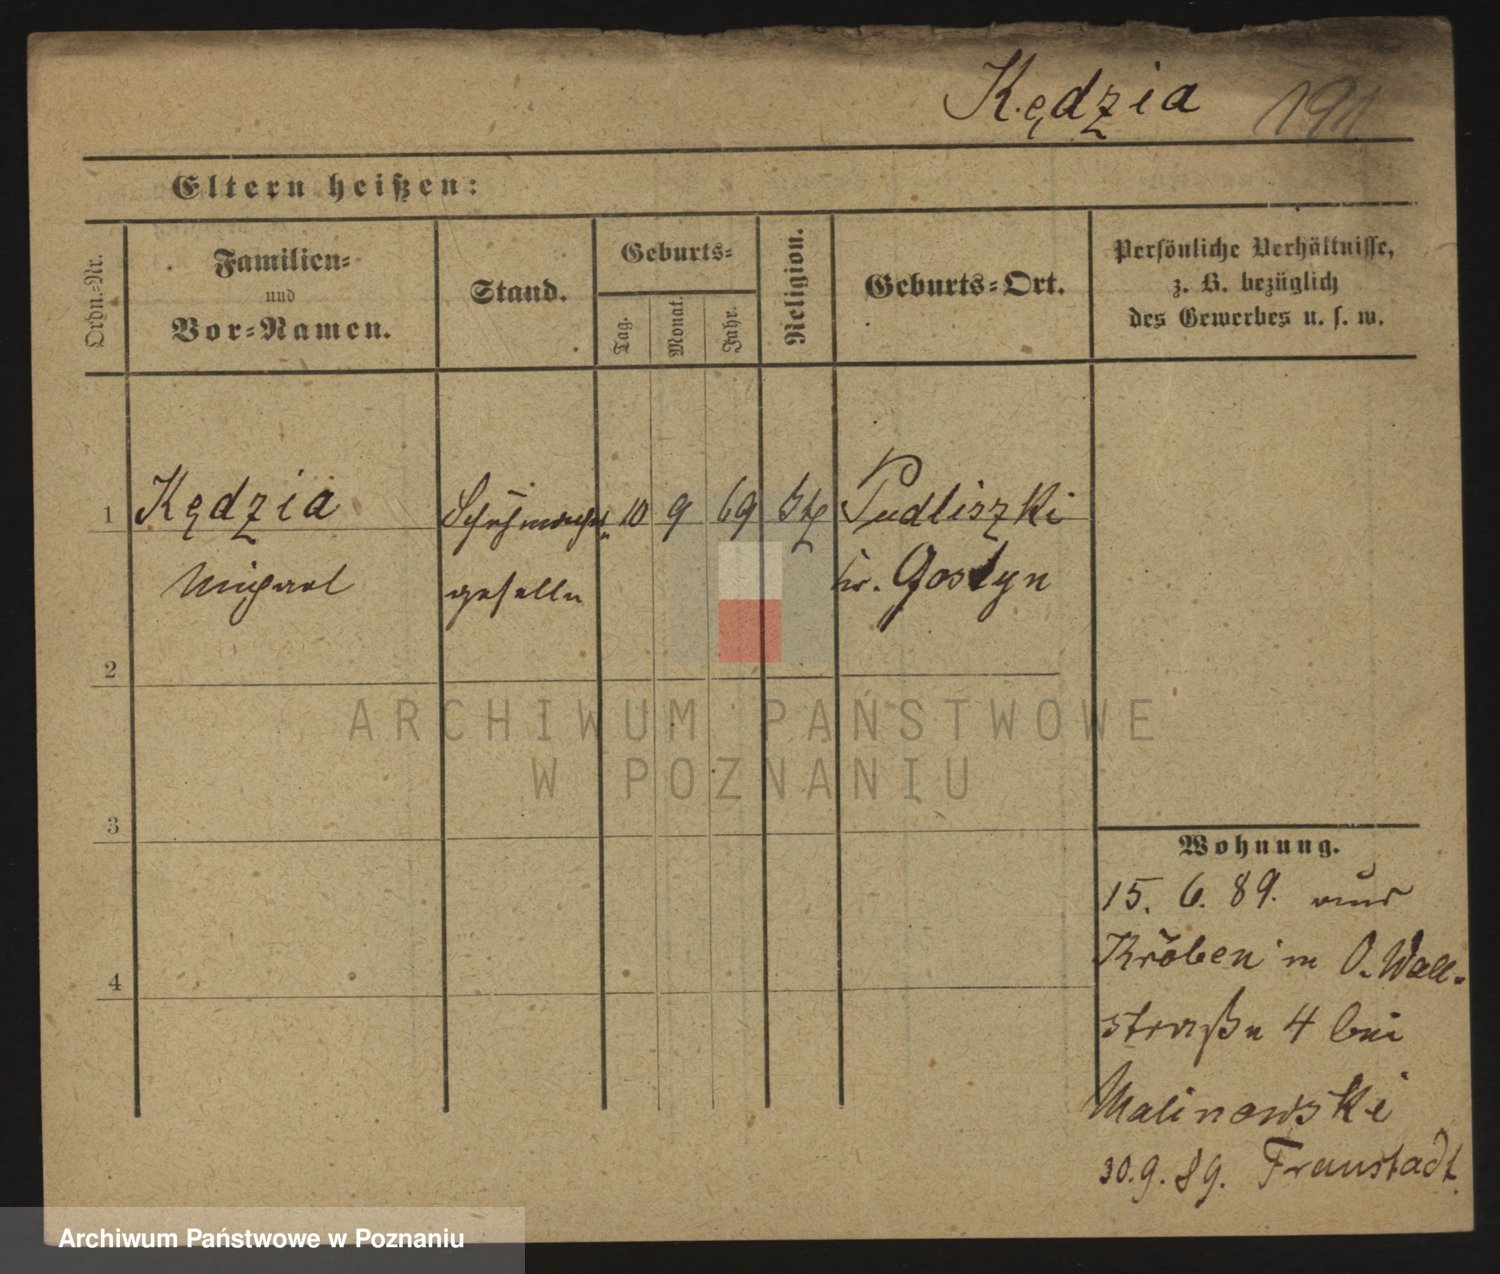 Kędzia 191
Eltern heißen:
Ordn.-Nr.
Familien-
und
Vor-Namen.
Stand.
Geburts-
Tag.
Monat.
Jahr.
Religion.
Geburts-Ort.
Persönliche Verhältnisse,
z. B. bezüglich
des Gewerbes u. s. w.
1 Kędzia Schuhmacher 10 9 69 kth Pudliszki
Michael geselle kr. Gostyn
2
3
4
Wohnung.
15. 6. 89. aus
Kröben in O. Wall-
straße 4 bei
Malinowski
30. 9. 89. Fraustadt.
ARCHIWUM PAŃSTWOWE
W POZNANIU
Archiwum Państwowe w Poznaniu